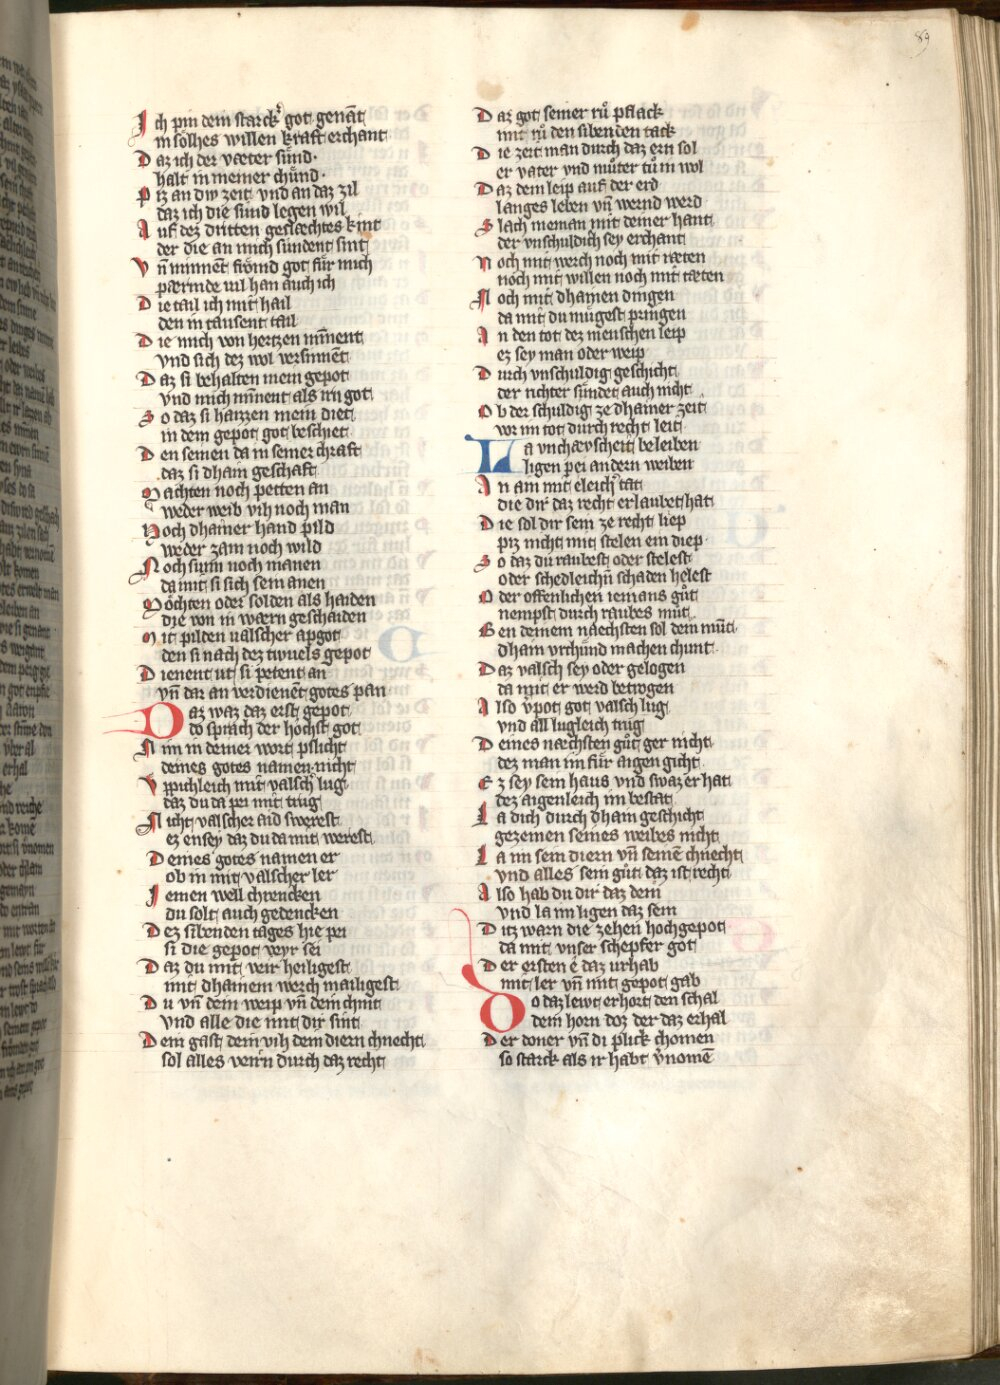 89
Ich pin dem starck° got genāt
in solhes willen kraft erchant
Daz ich der væter sünd·
halt in meiner chünd·
Piz an diw zeit vnd an daz zil
daz ich die sünd legen wil
Auf dez dritten geslæchtes kint
der die an mich sündent sint
Vn̄ minnēt frömd got für mich
pærmde wil han auch ich
Die tail ich mit hail
den in tausent tail
Die mich von hertzen mīnent
vnd sich dez wol versinnēt
Daz si behalten mein gepot
vnd mich minent als irn got
So daz si haizzen mein diet
in dem gepot got beschiet
Den seinen da in seiner chraft
daz si dhain geschaft
Machten noch petten an
weder weib vih noch man
Noch dhainer hand pild
weder zam noch wild
Noch sunn noch manen
da mit si sich sein anen
Möchten oder solden als haiden
die von in wærn geschaiden
Mit pilden valscher apgot
den si nach dez tiwuels gepot
Dienent vt si petent an
vn̄ dar an verdienēt gotes pan
Daz waz daz erst gepot
do sprach der höchst got
Nim in deiner wort pflicht
deines gotes namen nicht
Vppichleich mit valsch° lug
daz du da pei mit trug
Nicht valscher aid swerest
ez ensey daz du da mit werest
Deines gotes namen er
ob in mit valscher ler
Iemen well chrencken
du solt auch gedencken
Dez sibenden tages hie pei
si die gepot veyr sei
Daz du mit veir heiligest
mit dhainem werch mailigest
Du vn̄ dein weip vn̄ dein chint
vnd alle die mit dir sint
Dein gast dein vih dein diern chnecht
sol alles veirn durch daz recht
Daz got seiner rů pflack
mit rů den sibenden tack
Die zeit man durch daz ern sol
er vater vnd můter tů in wol
Daz dem leip auf der erd
langes leben vn̄ wernd werd
Slach nieman mit deiner hant
der vnschuldich sey erchant
Noch mit werch noch mit ræten
noch mit willen noch mit tæten
Noch mit dhainen dingen
da mit du mügest pringen
An den tot dez menschen leip
ez sey man oder weip
Durch vnschuldig geschicht
der richter sündet auch nicht
Ob der schuldig ze dhainer zeit
vor im tot durch recht leit
La vnchæyscheit beleiben
ligen pei andern weiben
An am mit eleich° tat
die dir daz recht erlaubet hat
Die sol dir sein ze recht liep
piz nicht mit stelen ein diep
So daz du raubest oder stelest
oder schedleichn̄ schaden helest
Oder offenlichen iemans gůt
nempst durch raubes můt
Gen deinem næchsten sol dein mūt
dham vrchünd machen chunt
Daz valsch sey oder gelogen
da mit er werd betrogen
Also v̄pot got valsch lug
vnd all lugleich trug
Deines næchsten gůt ger nicht
dez man im für aigen gicht
Ez sey sein haus vnd swaz er hat
dez aigenleich im bestat
La dich durch dhain geschicht
gezemen seines weibes nicht
La im sein diern vn̄ seinē chnecht
vnd alles sein gůt daz ist recht
Also hab du dir daz dein
vnd la im ligen daz sein
Ditz warn die zehen hochgepot
da mit vnser schepfer got
Der ersten e daz urhab
mit ler vn̄ mit gepot gab
Do daz lewt erhort den schal
dem horn doz der daz erhal
Der doner vn̄ di plick chomen
so starck als ir habt v̄nomē